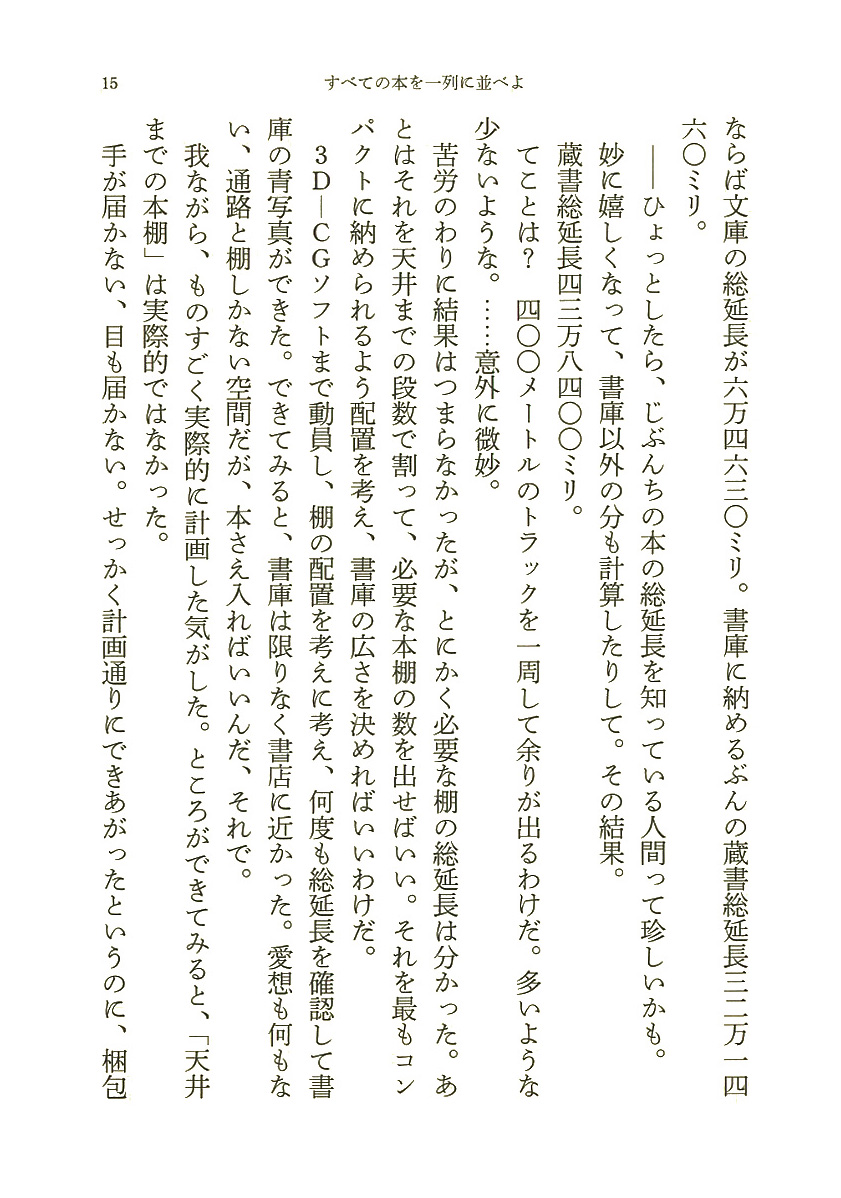 15
すべての本を一列に並べよ
ならば文庫の総延長が六万四六三〇ミリ。書庫に納めるぶんの蔵書総延長三二万一四
六〇ミリ。
――ひょっとしたら、じぶんちの本の総延長を知っている人間って珍しいかも。
妙に嬉しくなって、書庫以外の分も計算したりして。その結果。
蔵書総延長四三万八四〇〇ミリ。
てことは？　四〇〇メートルのトラックを一周して余りが出るわけだ。多いような
少ないような。……意外に微妙。
苦労のわりに結果はつまらなかったが、とにかく必要な棚の総延長は分かった。あ
とはそれを天井までの段数で割って、必要な本棚の数を出せばいい。それを最もコン
パクトに納められるよう配置を考え、書庫の広さを決めればいいわけだ。
3D―CGソフトまで動員し、棚の配置を考えに考え、何度も総延長を確認して書
庫の青写真ができた。できてみると、書庫は限りなく書店に近かった。愛想も何もな
い、通路と棚しかない空間だが、本さえ入ればいいんだ、それで。
我ながら、ものすごく実際的に計画した気がした。ところができてみると、「天井
までの本棚」は実際的ではなかった。
手が届かない、目も届かない。せっかく計画通りにできあがったというのに、梱包